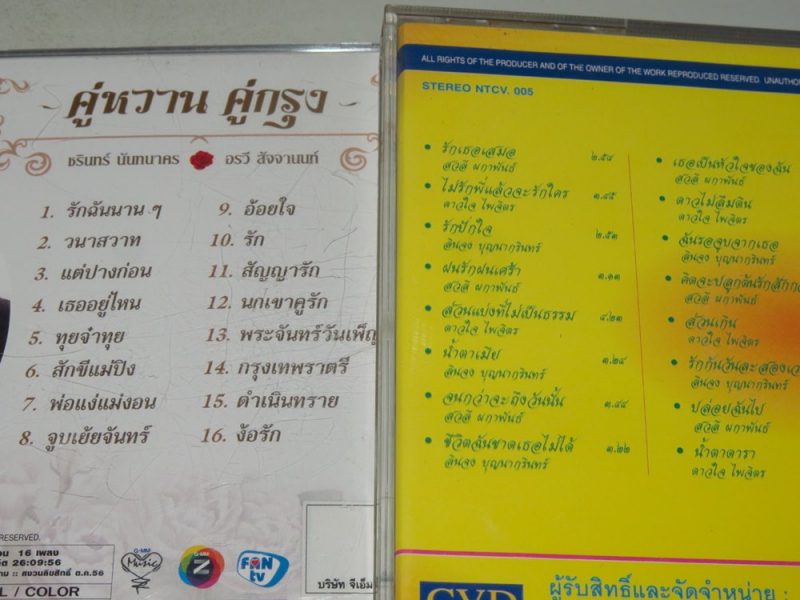 คู่หวาน คู่กรุง
ชรินทร์ นันทนาคร
อรวี สัจจานนท์
1. รักฉันนาน ๆ
2. วนาสวาท
3. แต่ปางก่อน
4. เธออยู่ไหน
5. ทุยจ๋าทุย
6. สักขีแม่ปิง
7. พ่อแง่แม่งอน
8. จูบเย้ยจันทร์
9. อ้อยใจ
10. รัก
11. สัญญารัก
12. นกเขาคูรัก
13. พระจันทร์วันเพ็ญ
14. กรุงเทพราตรี
15. ดำเนินทราย
16. ง้อรัก
RESERVED.
16 เพลง
26:09:56
สงวนลิขสิทธิ์ ต.ค.56
/ COLOR
G-MM
Music
Z
FAN
tv
บริษัท จีเอ็ม
ALL RIGHTS OF THE PRODUCER AND OF THE OWNER OF THE WORK REPRODUCED RESERVED. UNAUTHO
STEREO NTCV. 005
• รักเธอเสมอ ๒.๕๔
สวลี ผกาพันธ์
• ไม่รักพี่แล้วจะรักใคร ๓.๔๕
ดาวใจ ไพจิตร
• รักปักใจ ๒.๕๑
ลินจง บุญนากรินทร์
• ฝนรักฝนเศร้า ๓.๑๓
สวลี ผกาพันธ์
• ส่วนแบ่งที่ไม่เป็นธรรม ๔.๒๑
ดาวใจ ไพจิตร
• น้ำตาเมีย ๓.๒๔
ลินจง บุญนากรินทร์
• จนกว่าจะถึงวันนั้น ๓.๔๔
สวลี ผกาพันธ์
• ชีวิตฉันขาดเธอไม่ได้ ๓.๒๒
ลินจง บุญนากรินทร์
• เธอเป็นหัวใจของฉัน
สวลี ผกาพันธ์
• ดาวไม่ลืมดิน
ดาวใจ ไพจิตร
• ฉันรอจูบจากเธอ
ลินจง บุญนากรินทร์
• คิดจะปลูกต้นรักสักก
สวลี ผกาพันธ์
• ส่วนเกิน
ดาวใจ ไพจิตร
• รักกันวันละสองเว
ลินจง บุญนากรินทร์
• ปล่อยฉันไป
สวลี ผกาพันธ์
• น้ำตาดารา
ดาวใจ ไพจิตร
ผู้รับสิทธิ์และจัดจำหน่าย :